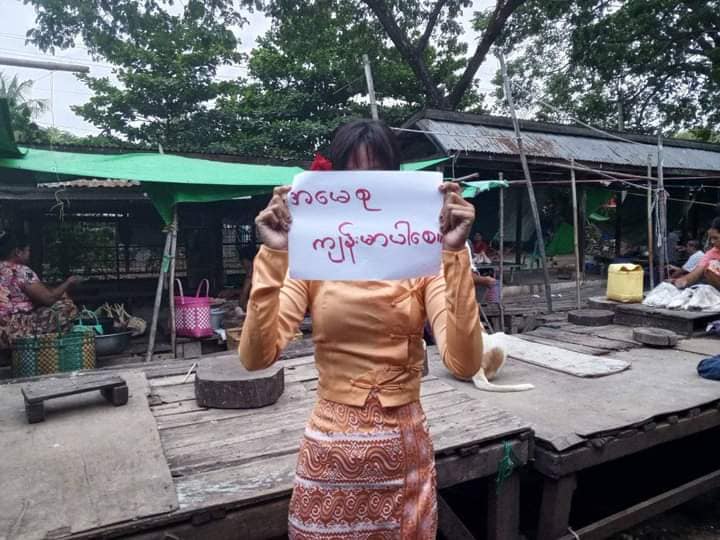 အမေစု
ကျန်းမာပါစေ